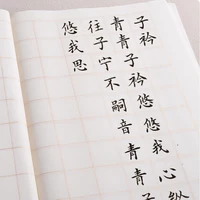 子衿
青青子衿悠悠我心纵
往子宁不嗣音青青子
悠我思